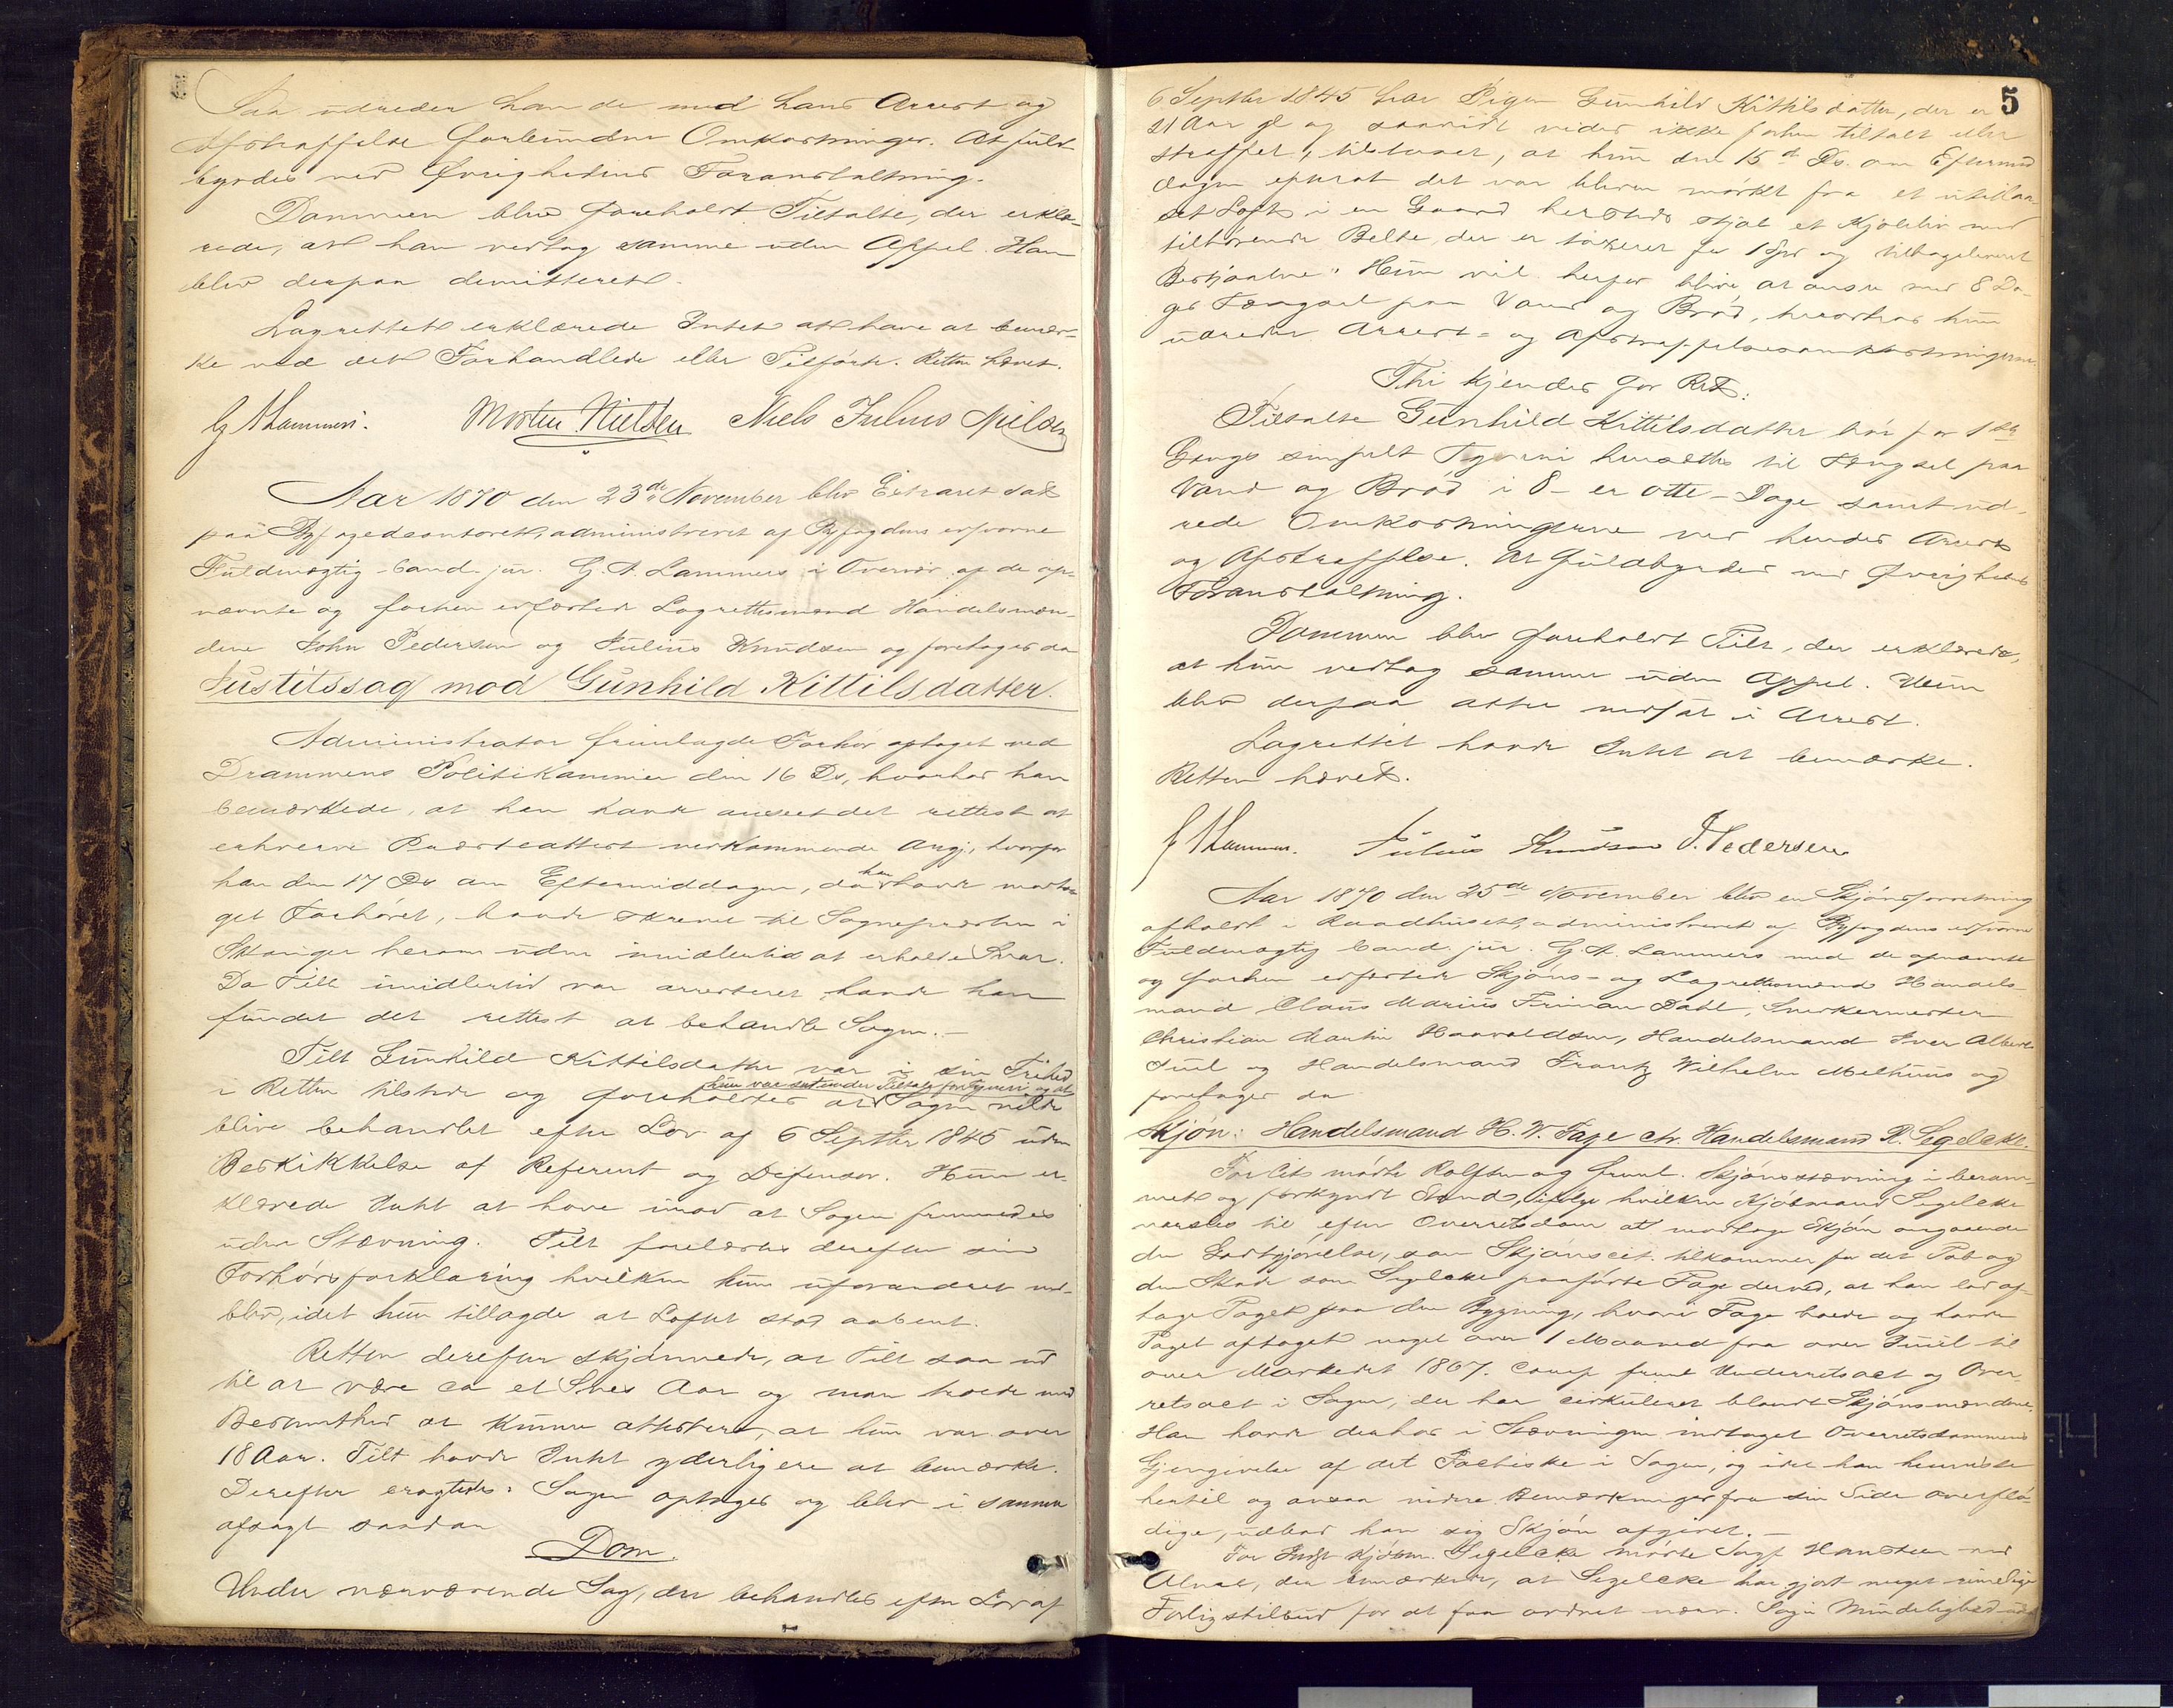 Saa udreder han de med hans Arrest og
Afstraffelse forbundne Omkostninger. At fuld-
byrdes ved Øvrighedens Foranstaltning.
Dommen blev foreholdt Tiltalte, der erklæ-
rede, at han vedtog samme uden Appel. Han
blev derpaa demitteret.
Lagrettet erklærede Intet at have at bemær-
ke ved det Forhandlede eller Tilførte. Retten hævet.
G A Lammers. Morten Nielsen Niels Julius Nielsen
Aar 1870 den 23de November blev Extraret sat
paa Byfogedcontoret, administreret af Byfogdens edsvorne
Fuldmægtig Cand. jur. G. A. Lammers i Overvær af de op-
nævnte og forhen edfæstede Lagrettesmænd Handelsmæn-
dene John Pedersen og Julius Knudsen og foretages da
Justitssag mod Gunhild Kittilsdatter.
Administrator fremlagde Forhør optaget ved
Drammens Politikammer den 16 Ds, hvorhos han
bemærkede, at han havde anseet det rettest at
erhverve Præsteattest vedkommende Angj, hvorfor
han den 17 Ds om Eftermiddagen, da han havde modta-
get Forhøret, havde skrevet til Sognepræsten i
herom uden imidlertid at erholde Svar.
Da Tilt imidlertid var arresteret, havde han
fundet det rettest at behandle Sagen.-
Tilt Gunhild Kittilsdatter var i sin Frihed
hun var sat under Tiltale for Tyveri og at
i Retten tilstede og foreholdtes at Sagen vilde
blive behandlet efter Lov af 6 Septbr 1845 uden
Beskikkelse af Referent og Defensor. Hun er-
klærede Intet at have imod at Sagen fremmedes
uden Stævning. Tilt forelæstes derefter sin
Forhørsforklaring hvilken hun uforandret ved-
blev, idet hun tillagde at Loftet stod aabent.
Retten derefter skjønnede, at Tilt saa ud
til at være ca et Snes Aar og man troede med
Bestemthed at kunne attestere, at hun var over
18 Aar. Tilt havde Intet yderligere at bemærke.
Derefter eragtedes: Sagen optages og blev i samme
afsagt saadan
Dom.
Under nærværende Sag, der behandles efter Lov af
5
6 Septbr 1845 har Pigen Gunhild Kittilsdatter, der er
21 Aar gl og saavidt vides ikke forhen tiltalt eller
straffet, tilstaaet, at hun den 15d Ds. om Eftermid-
dagen efterat det var bleven mørkt fra et utillaa-
set Loft i en Gaard hersteds stjal et Kjoleliv med
tilhørende Belte, der er taxeret for 1 Spd og tilbageleveret
Bestjaalne. Hun vil herfor blive at ansee med 8 Da-
ges Fængsel paa Vand og Brød, hvorhos hun
udreder Arrest- og Afstraffelsesomkostningerne.
Thi kjendes for Ret:
Tiltalte Gunhild Kittilsdatter bør for 1ste
Gangs simpelt Tyveri hensættes til Fængsel paa
Vand og Brød i 8 - er otte - Dage samt ud-
rede Omkostningerne ved hendes Arrest
og Afstraffelse. At fuldbyrdes ved Øvrighedens
Foranstaltning.
Dommen blev foreholdt Tilt, der erklærede,
at hun vedtog samme uden Appel. Hun
blev derpaa atter nedsat i Arrest.
Lagrettet havde Intet at bemærke.
Retten hævet.
G A Lammers. Julius Knudsen J. Pedersen
Aar 1870 den 25de November blev en Skjønsforretning
afholdt i Raadhuset, administreret af Byfogdens edsvorne
Fuldmægtig Cand. jur. G. A. Lammers med de opnævnte
og forhen edfæstede Skjøns- og Lagrettesmænd Handels-
mand Claus Marius Friman Dahl, Snedkermester
Christian Martin Haavaldsen, Handelsmand Iver Albert
Juul og Handelsmand Frantz Wilhelm Melhuus og
foretages da
Skjøn: Handelsmand H. V. Fage ctr. Handelsmand R. Segelcke.
For Cit mødte Rolfsen og freml. Skjønsstævning i beram-
met og forkyndt Stand, ifølge hvilken Kjøbmand Segelcke
varsles til efter Overretsdom at modtage Skjøn angaaende
den Godtgjørelse, som Skjønscit. tilkommer for det Tab og
den Skade som Segelcke paaførte Fage derved, at han lod af-
tage Taget paa den Bygning, hvori Fage boede og havde
Taget aftaget noget over 1 Maaned fra over Juul til
over Markedet 1867. Comp freml Underretsact og Over-
retsact i Sagen, der har cirkuleret blandt Skjønsmændene.
Han havde derhos i Stævningen indtaget Overretsdommens
Gjengivelse af det Factiske i Sagen, og idet han henviste
hertil og ansaa videre Bemærkninger fra sin Side overflø-
dige, udbad han sig Skjøn afgivet.-
For Indst Kjøbm. Segelcke mødte Sagf Hansteen ved
Alnæs, der bemærkede, at Segelcke har gjort meget rimelige
Forligstilbud for at faa ordnet nærv. Sag i Mindelighed uden